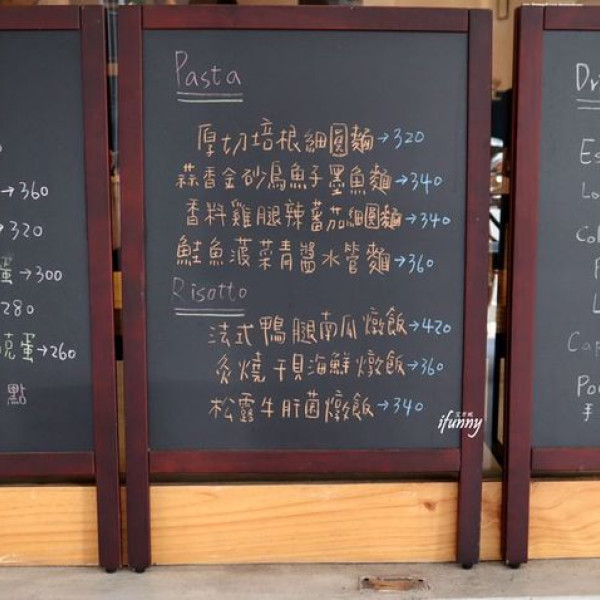 →360
→320
蛋→300
280
克蛋→260
點
Pasta
厚切培根細圓麵→320
蒜香金砂烏魚子墨魚麵→340
香料雞腿辣蕃茄細圓麵→340
鮭魚菠菜青醬水管麵→360
Risotto
法式鴨腿南瓜燉飯→420
炙燒干貝海鮮燉飯→360
松露牛肝菌燉飯→340
ifunny
Dr
Es
Lo
Col
P
L
Cap
Pou
手